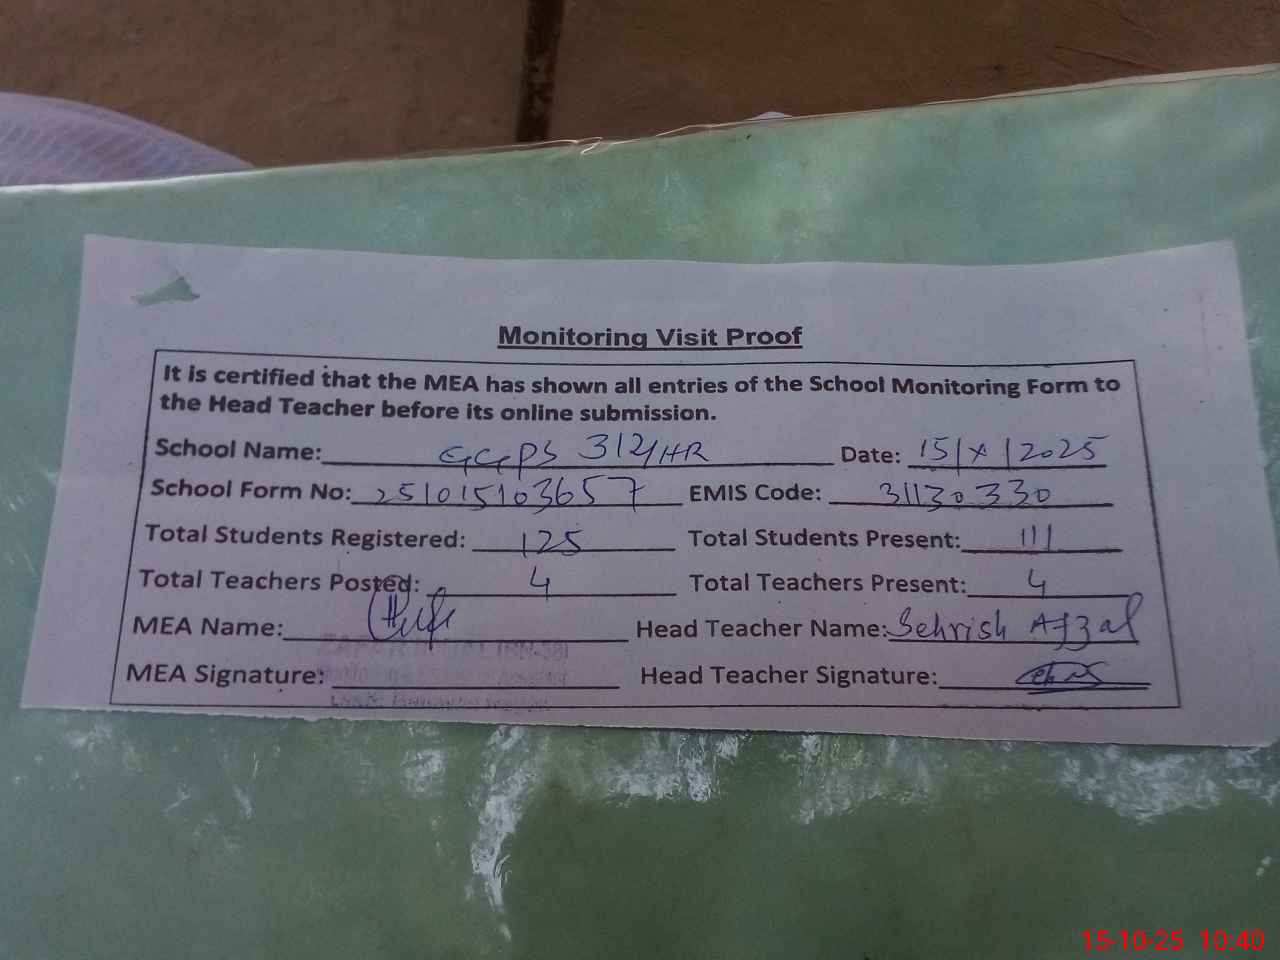 Monitoring Visit Proof
It is certified that the MEA has shown all entries of the School Monitoring Form to
the Head Teacher before its online submission.
School Name: GGPS 312/HR Date: 15/X/2025
School Form No: 251015103657 EMIS Code: 31130330
Total Students Registered: 125 Total Students Present: 111
Total Teachers Posted: 4 Total Teachers Present: 4
MEA Name: Head Teacher Name: Sehrish Afzal
MEA Signature: Head Teacher Signature:
15-10-25 10:40